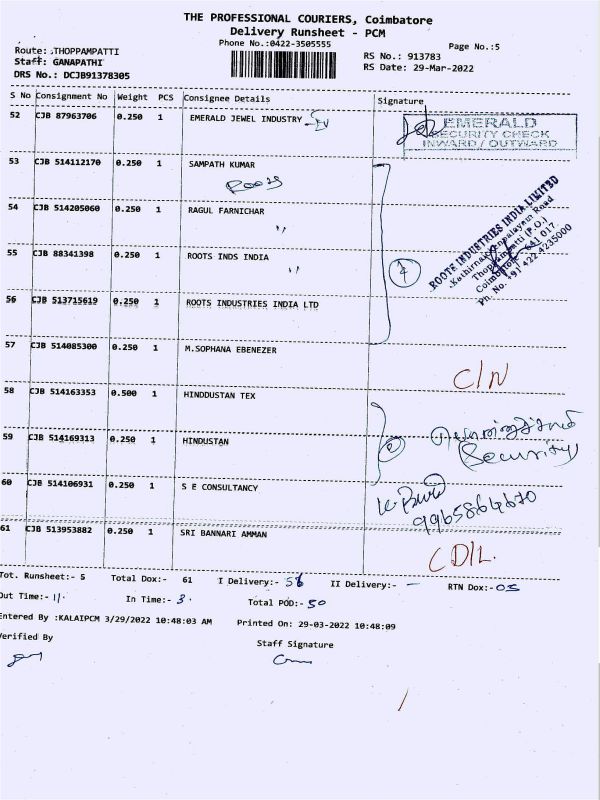 THE PROFESSIONAL COURIERS, Coimbatore
Delivery Runsheet - PCM
Phone No.:0422-3505555
Page No.:5
Route: .THOPPAMPATTI
Staff: GANAPATHI
DRS No.: DCJB91378305
RS No.: 913783
RS Date: 29-Mar-2022
S No Consignment No Weight PCS Consignee Details Signature
52 CJB 87963706 0.250 1 EMERALD JEWEL INDUSTRY
EMERALD
SECURITY CHECK
INWARD / OUTWARD
53 CJB 514112170 0.250 1 SAMPATH KUMAR
Roots
54 CJB 514205060 0.250 1 RAGUL FARNICHAR
"
55 CJB 88341398 0.250 1 ROOTS INDS INDIA
"
4
ROOTS INDUSTRIES INDIA LIMITED
Thoppampatti (P.O.)
Coimbatore - 641 017.
Ph. No. +91 422 4235000
56 CJB 513715619 0.250 1 ROOTS INDUSTRIES INDIA LTD
57 CJB 514085300 0.250 1 M.SOPHANA EBENEZER
C/N
58 CJB 514163353 0.500 1 HINDDUSTAN TEX
59 CJB 514169313 0.250 1 HINDUSTAN
2
(Security)
60 CJB 514106931 0.250 1 S E CONSULTANCY
9965864670
61 CJB 513953882 0.250 1 SRI BANNARI AMMAN
CD/L.
Tot. Runsheet:- 5 Total Dox:- 61 I Delivery:- 56 II Delivery:- — RTN Dox:- 05
Out Time:- 11. In Time:- 3. Total POD:- 50
Entered By :KALAIPCM 3/29/2022 10:48:03 AM Printed On: 29-03-2022 10:48:09
Verified By Staff Signature